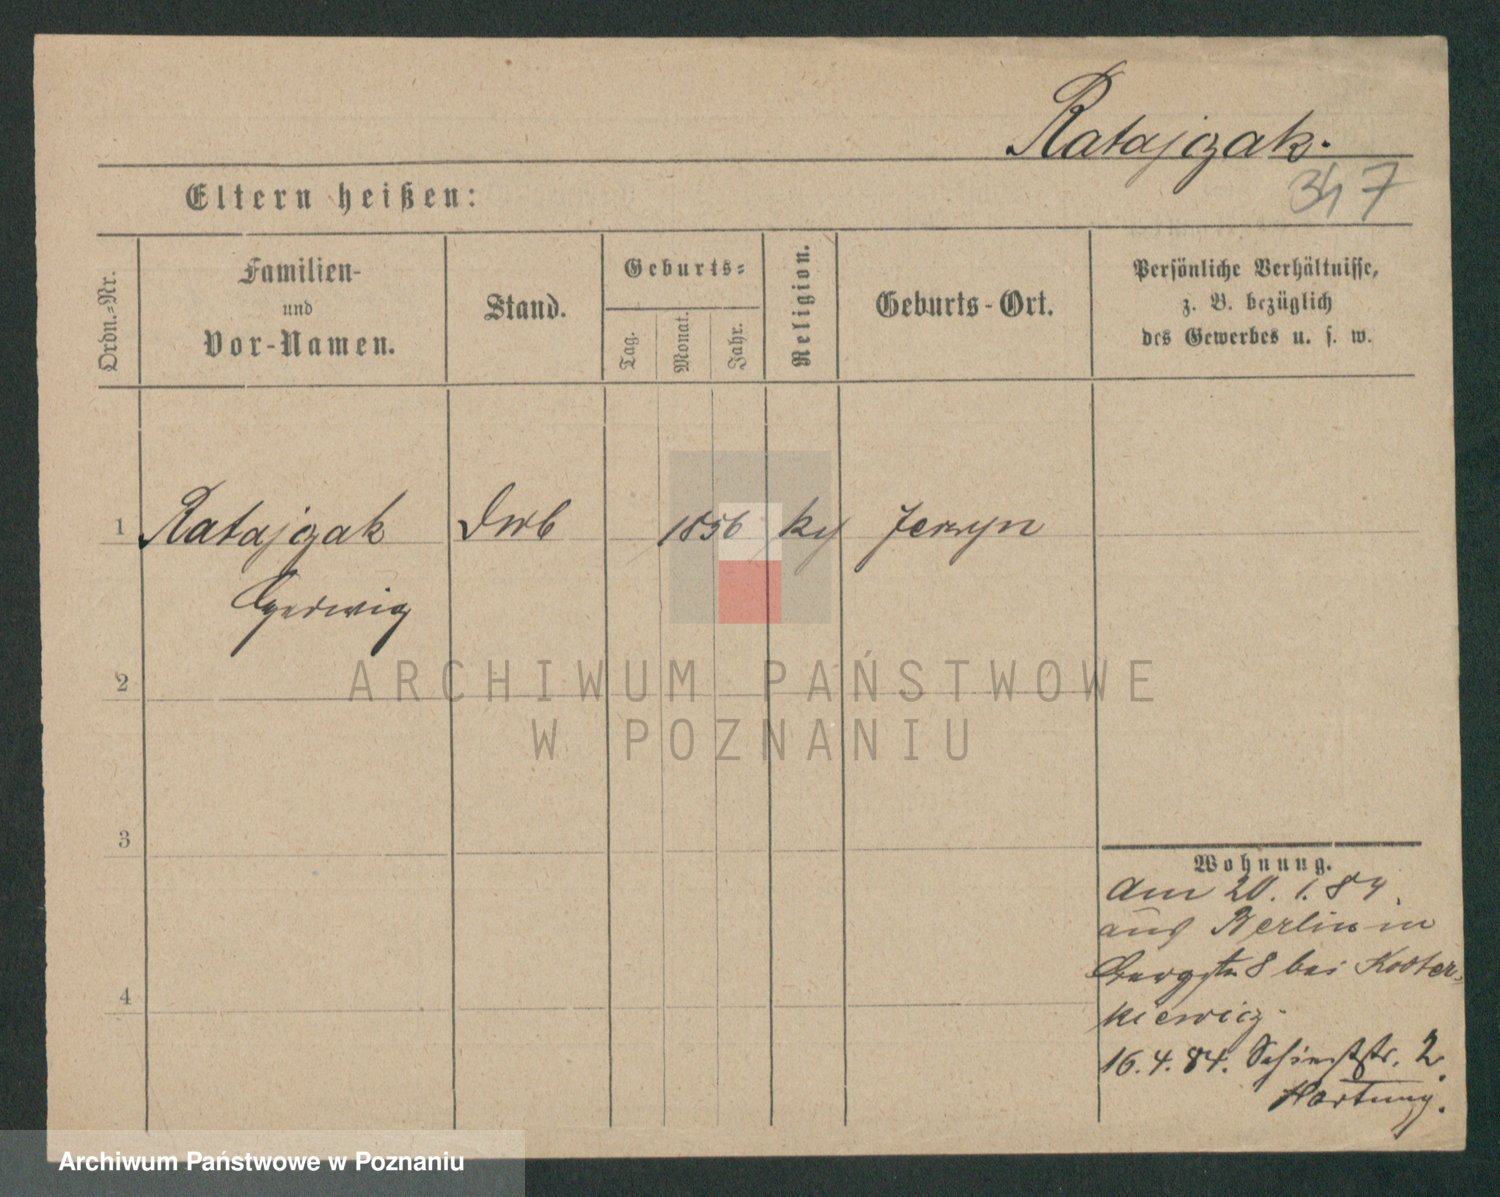 Ratajczak.
347
Eltern heißen:
Ordn.-Nr.
Familien-
und
Vor-Namen.
Stand.
Geburts-
Tag.
Monat.
Jahr.
Religion.
Geburts-Ort.
Persönliche Verhältnisse,
z. B. bezüglich
des Gewerbes u. s. w.
1 Ratajczak 1856
2
ARCHIWUM PAŃSTWOWE
W POZNANIU
3
4
Wohnung.
Am 20. 1. 84.
aus Berlin in
8 bei Koster-
kiewicz.
16. 4. 84. 2.
Hartung.
Archiwum Państwowe w Poznaniu